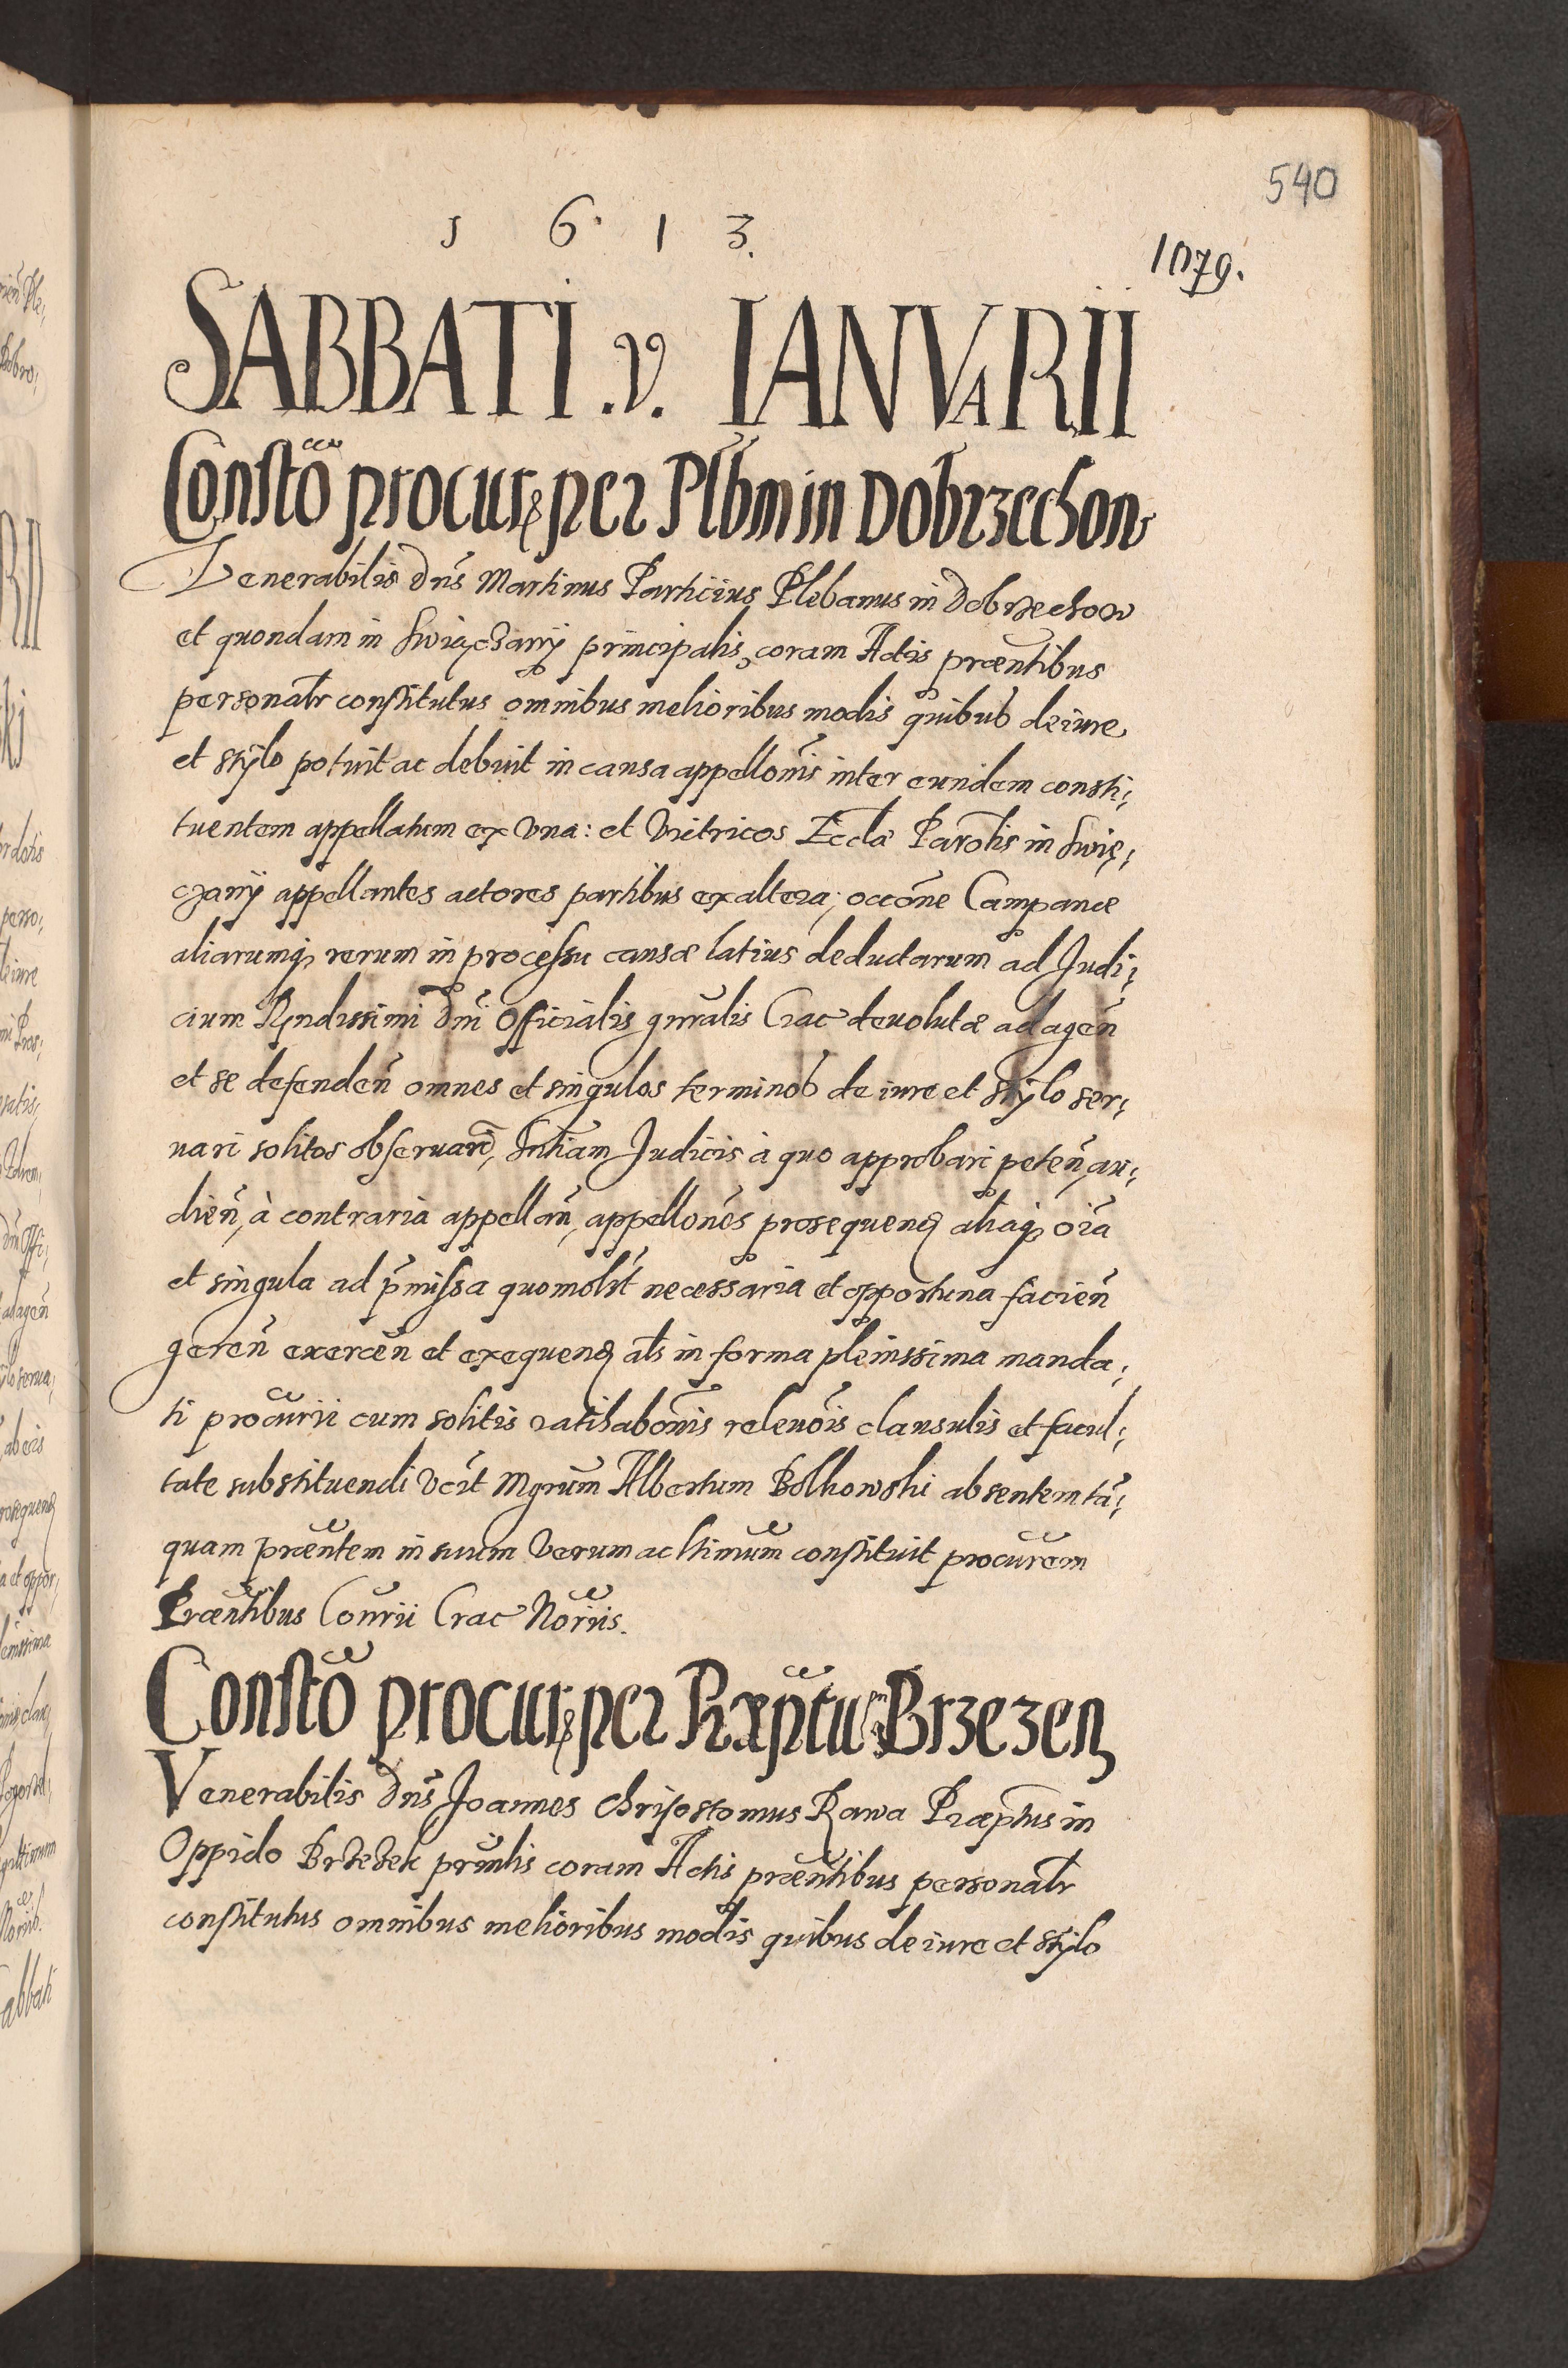 540
1 6 1 3.
1079.
SABBATI .V. IANVARII
Constõ procur per Plbm in Dobrzechow
Venerabilis Dns̃ Martinus Particius Plebanus in Dobrzechow
et quondam in Swięczany principalis, coram Actis præntibus
personalr constitutus omnibus melioribus modis quibus de iure
et stÿlo potuit ac debuit in causa appellonis̃ inter eundem consti;
tuentem appellatum ex vna: et Vitricos Eccłæ Parolis in Swię;
czany appellantes actores partibus ex altera; occõne Campanæ
aliarumq rerum in processu causæ latius deductarum ad Judi;
cium Rndissimi Dni Officialis gnralis Crac deuolutæ ad ageñ
et se defendeñ omnes et singulos terminos de iure et stÿlo ser;
uari solitos obseruarẽ, Sntiam Judicis à quo approbari peteñ, au;
dieñ, à contraria appellañ, appellones̃ prosequenḍ aliaq oĩa
et singula ad p̃missa quomolbt necessaria et opportuna facieñ
gereñ exerceñ et exequenḍ als in forma plenissima manda;
ti procurii cum solitis ratihabonis̃ releuois̃ clausulis et facul;
tate substituendi vñt Mgrum Albertum Bolkowski absentem tã;
quam præntem in suum verum ac ltimum constituit procurem
Præntibus Conrii Crac Noriis.
Constõ procur per Præptum Brzezeñ
Venerabilis Dns̃ Joannes Chrisostomus Rawa Præptus in
Oppido Brzezek prinlis coram Actis præntibus personalr
constitutus omnibus melioribus modis quibus de iure et stÿlo